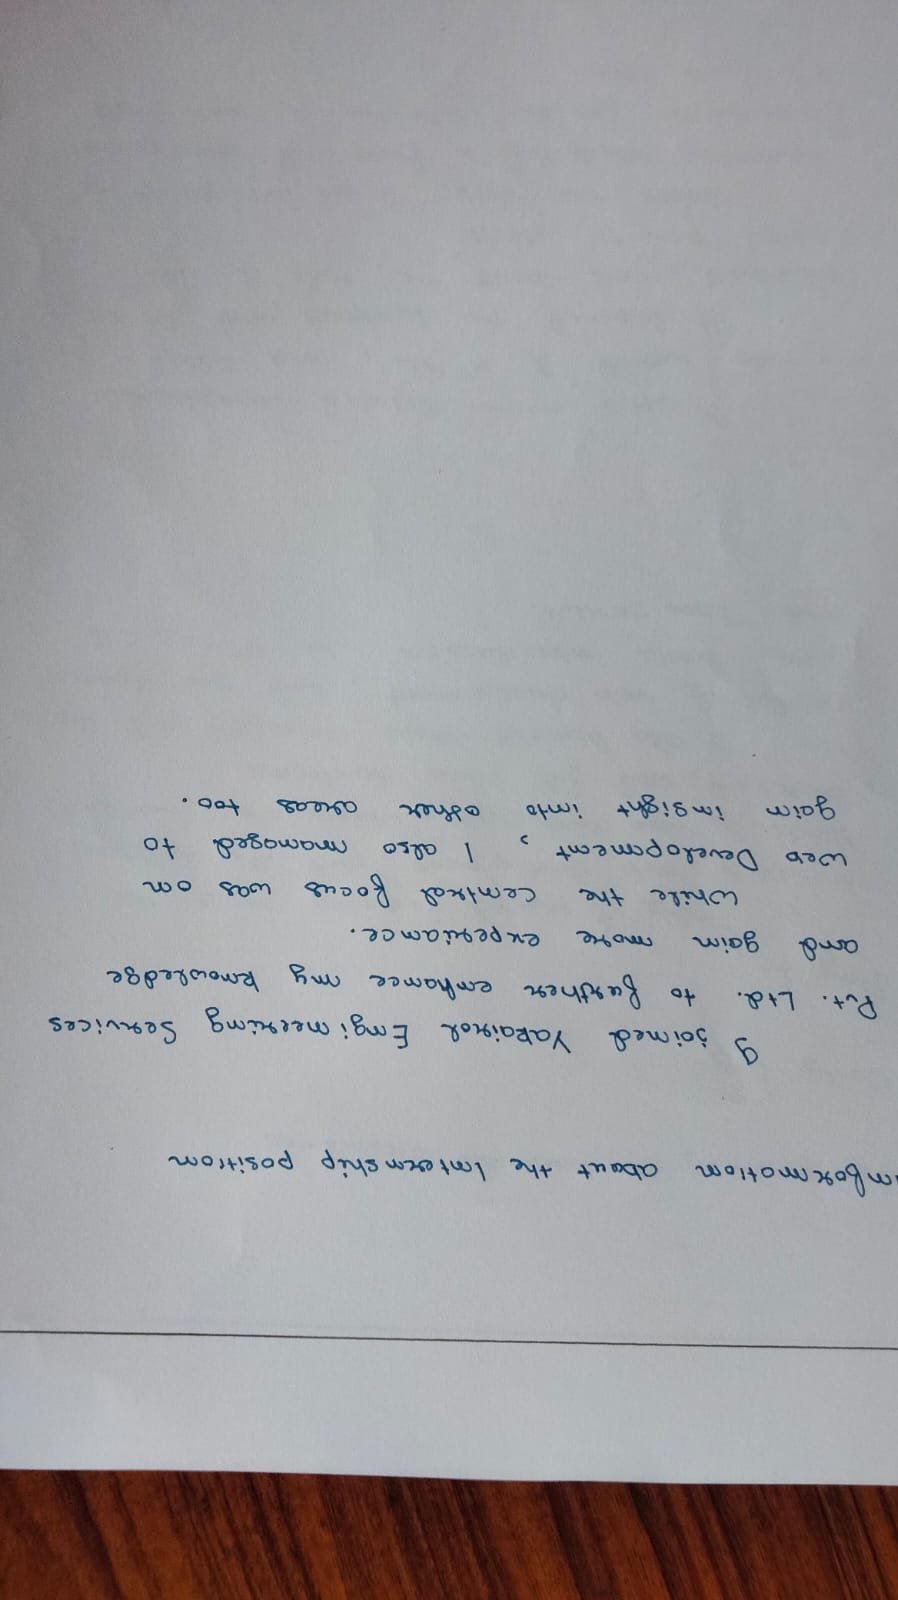 information about the Internship position
I joined Yakairol Engineering Services
Pvt. Ltd. to further enhance my knowledge
and gain more experiance.
While the central focus was on
Web Development, I also managed to
gain insight into other areas too.